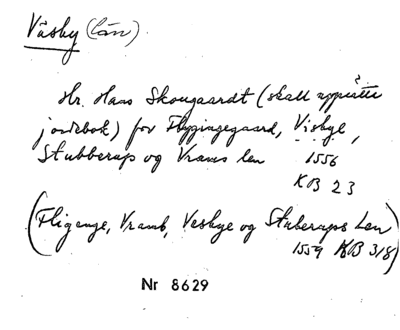 Väsby (län)
Hr. Hans Skougaardt (skall upprätta
jordebok) for Flyginzegaard, Visbye,
Stubberup og Vrams len 1556
KB 23
(Fligenge, Vramb, Vesbye og Stuberups Len
1559 KB 318)
Nr 8629